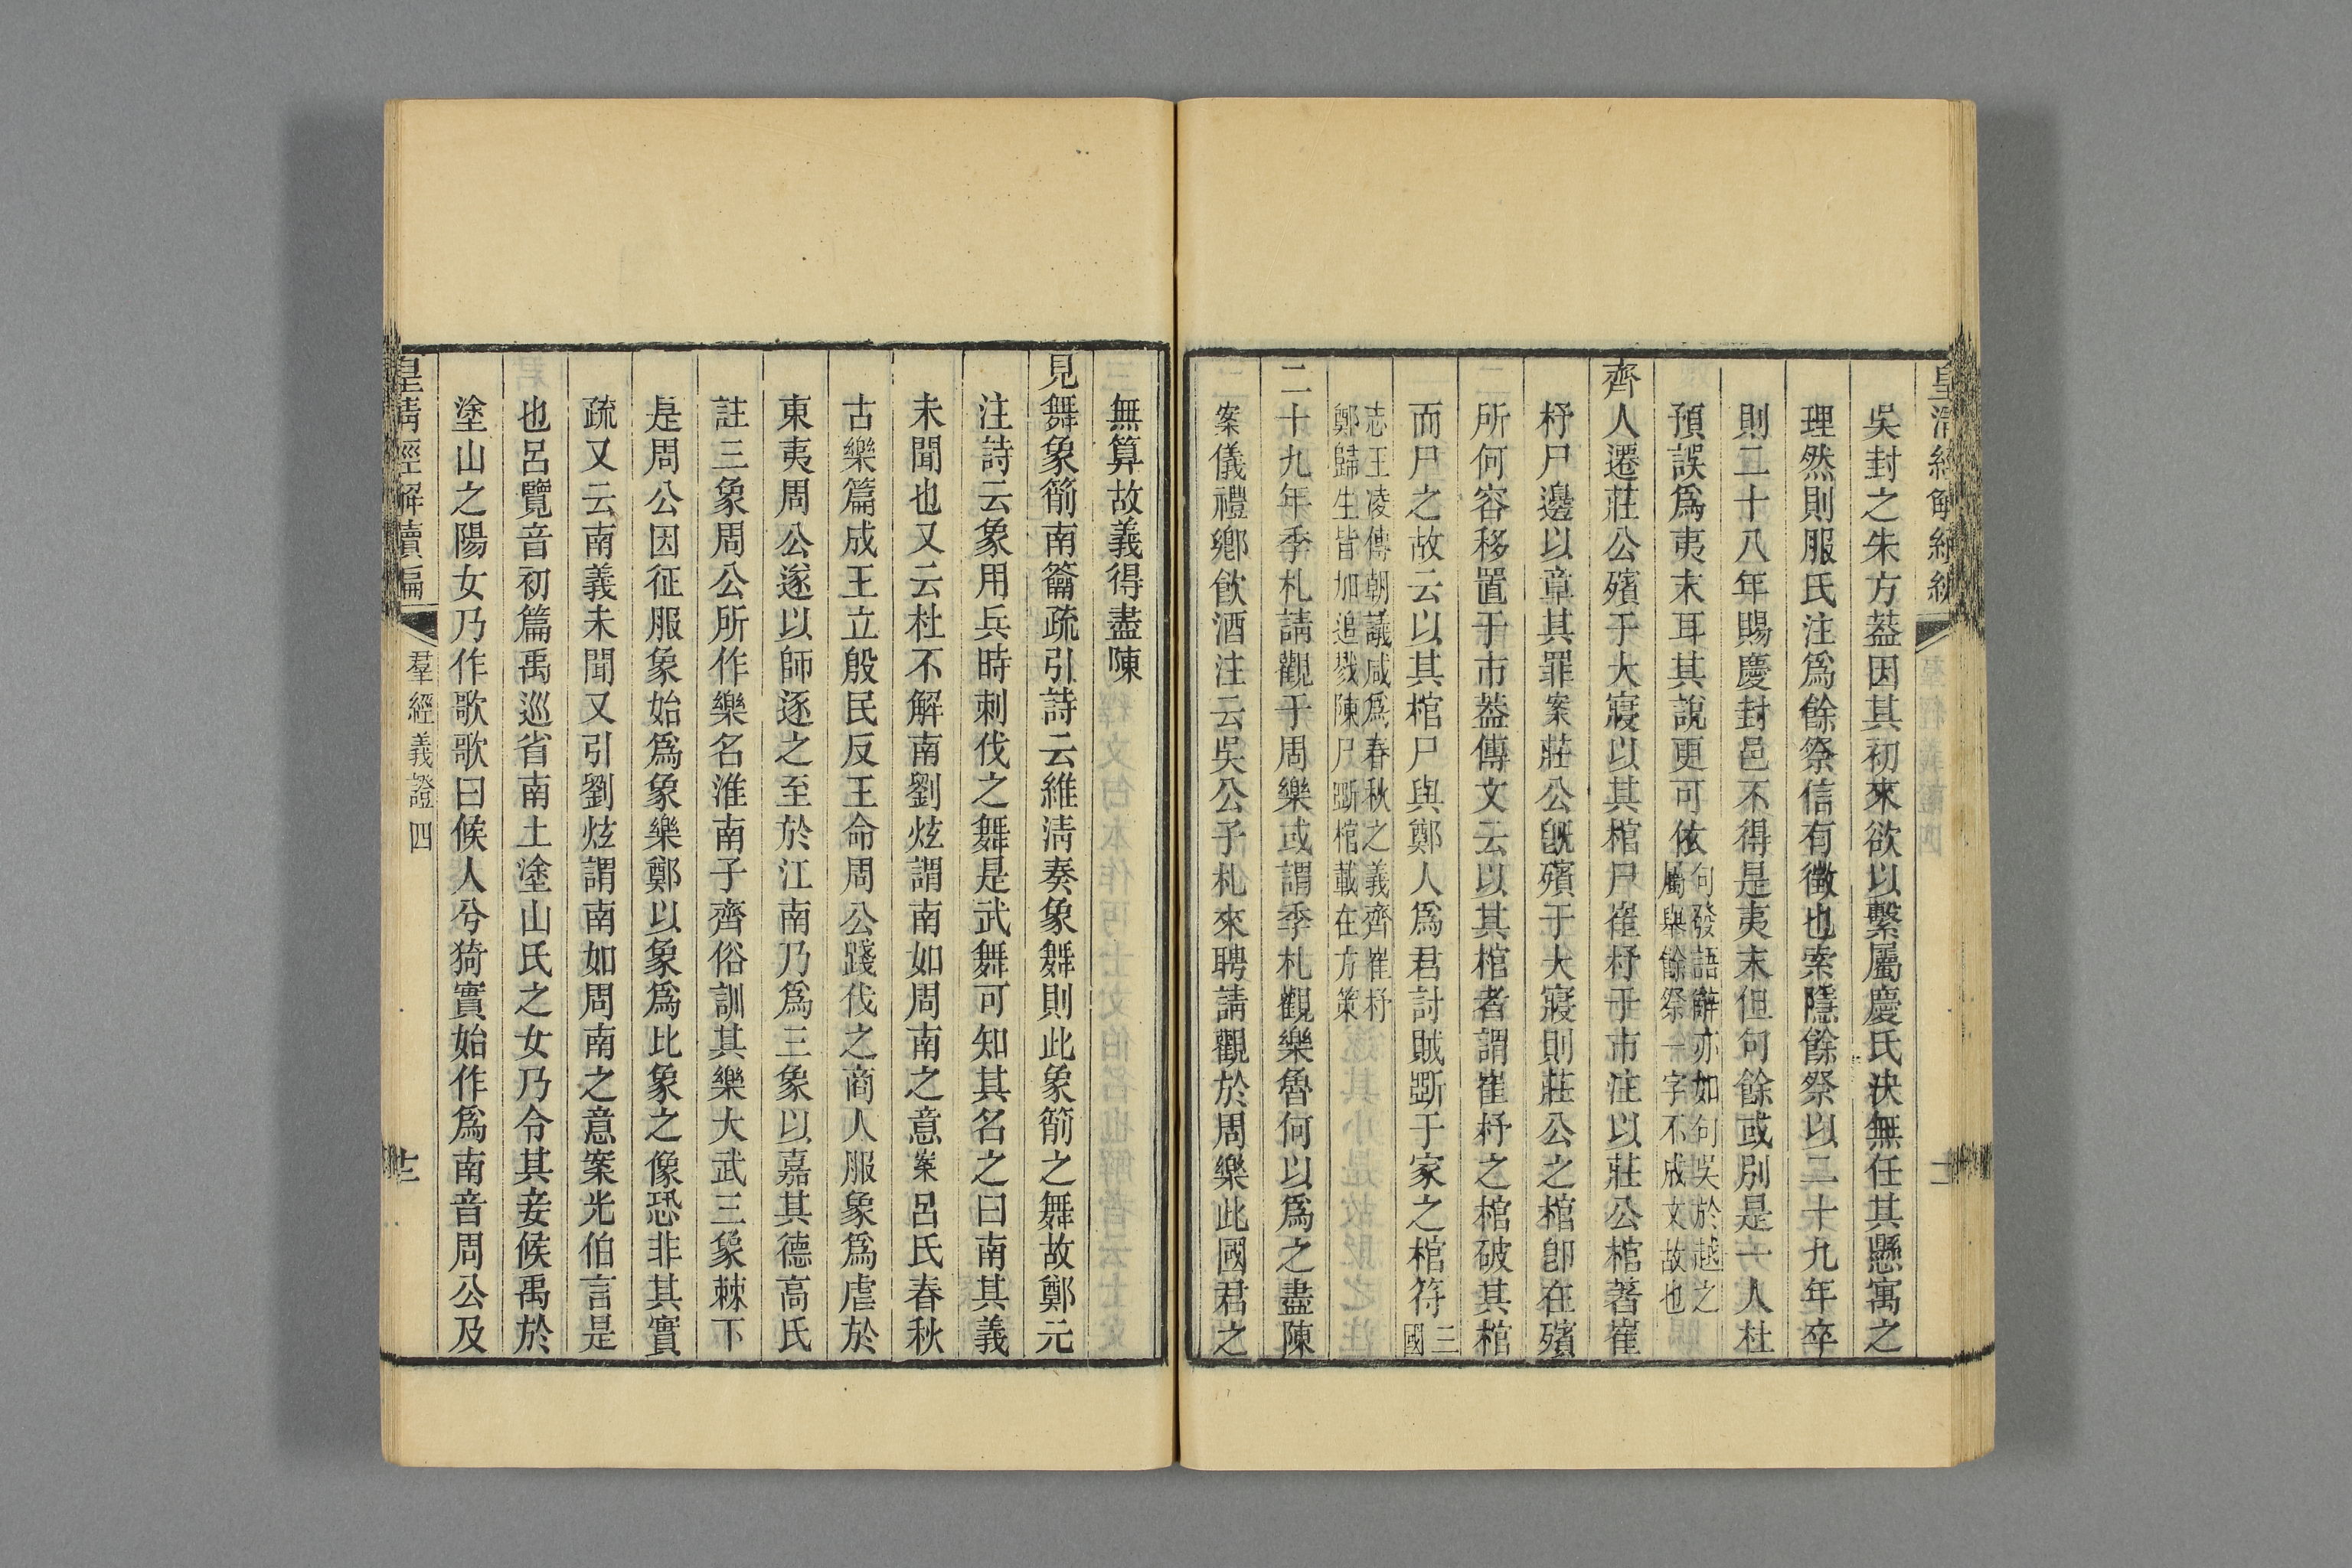 吳封之朱方葢因其初來欲以繫屬慶氏決無任其懸寓之
理然則服氏注爲餘祭信有徵也索隱餘祭以二十九年卒
則二十八年賜慶封邑不得是夷末但句餘或別是一人杜
預誤爲夷末耳其說更可依句發語辭亦如句吳於越之屬與餘祭一字不成文故也
齊人遷莊公殯于大寢以其棺尸崔杼于市注以莊公棺著崔
杼尸邊以章其罪案莊公旣殯于大寢則莊公之棺卽在殯
所何容移置于市葢傳文云以其棺者謂崔杼之棺破其棺
而尸之故云以其棺尸與鄭人爲君討賊斲于家之棺符三國
志王凌傳朝議咸爲春秋之義齊崔杼鄭歸生皆加追戮陳尸斲棺載在方策
二十九年季札請觀于周樂或謂季札觀樂魯何以爲之盡陳
案儀禮鄕飮酒注云吳公子札來聘請觀於周樂此國君之
無算故義得盡陳
見舞象箾南籥疏引詩云維淸奏象舞則此象箾之舞故鄭元
注詩云象用兵時刺伐之舞是武舞可知其名之曰南其義
未聞也又云杜不解南劉炫謂南如周南之意案呂氏春秋
古樂篇成王立殷民反王命周公踐伐之商人服象爲虐於
東夷周公遂以師逐之至於江南乃爲三象以嘉其德高氏
註三象周公所作樂名淮南子齊俗訓其樂大武三象棘下
是周公因征服象始爲象樂鄭以象爲比象之像恐非其實
疏又云南義未聞又引劉炫謂南如周南之意案光伯言是
也呂覽音初篇禹巡省南土塗山氏之女乃令其妾候禹於
塗山之陽女乃作歌歌曰候人兮猗實始作爲南音周公及
皇淸經解續編 羣經義證四 十二